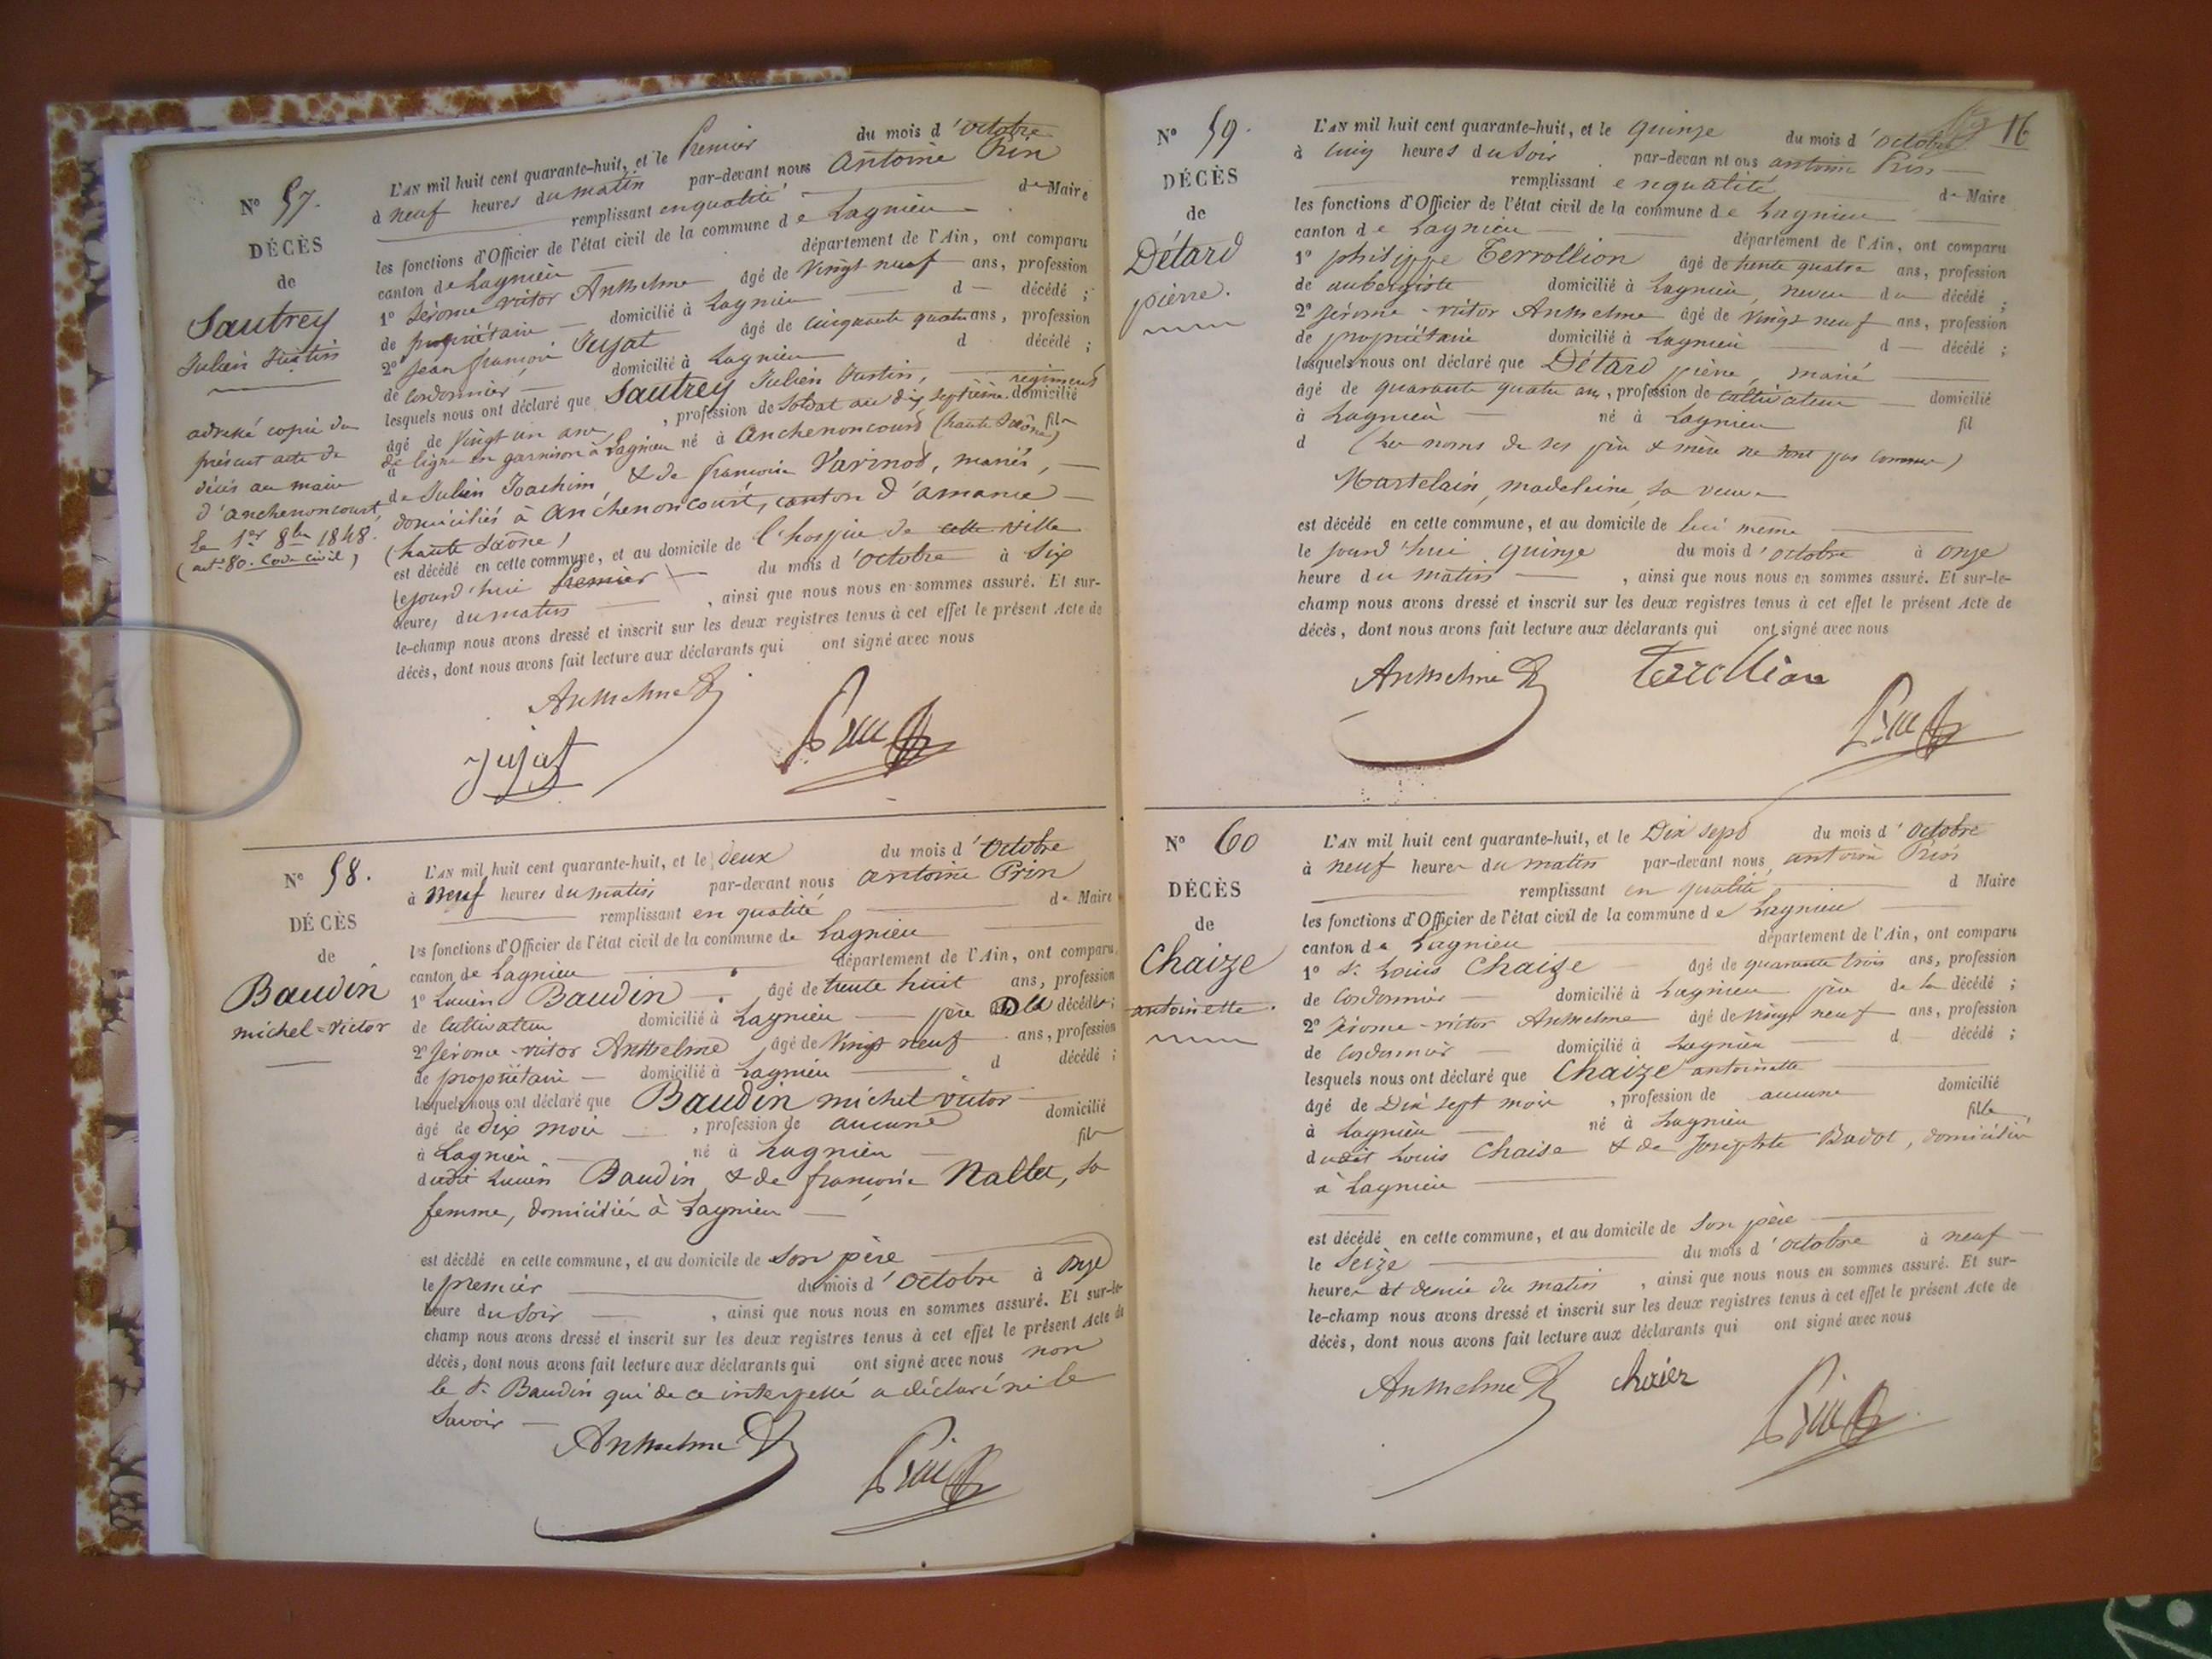 N° 57.
DÉCÈS
de
Sautrey
Julien Justin
adressé copie du
présent acte de
décès au maire
d'anchenoncourt,
le 1er 8bre 1848.
(art. 80. Code Civil)
L'AN mil huit cent quarante-huit, et le Premier du mois d'octobre
à neuf heures du matin par-devant nous Antoine Prin
remplissant en qualité de Maire
les fonctions d'Officier de l'état civil de la commune de Lagnieu
canton de Lagnieu département de l'Ain, ont comparu
1° Jérome victor Anthelme âgé de Vingt neuf ans, profession
de propriétaire domicilié à Lagnieu d décédé ;
2° Jean françois Jujat âgé de cinquante quatre ans, profession
de Cordonnier domicilié à Lagnieu d décédé ;
lesquels nous ont déclaré que Sautrey Julien Justin, régiment
âgé de Vingt un ans, profession de Soldat au dix septième domicilié
à de ligne en garnison à Lagnieu né à Anchenoncourt (haute Saône) fils
de Julien Joachim, & de françoise Varinot, mariés,
domiciliés à Anchenoncourt, canton d'amance
(haute Saône)
est décédé en cette commune, et au domicile de l'hospice de cette ville
le jourd'hui Premier du mois d'octobre à Six
heures du matin, ainsi que nous nous en sommes assuré. Et sur-
le-champ nous avons dressé et inscrit sur les deux registres tenus à cet effet le présent Acte de
décès, dont nous avons fait lecture aux déclarants qui ont signé avec nous
Anthelme
Jujat
Prin
N° 58.
DÉCÈS
de
Baudin
michel=victor
L'AN mil huit cent quarante-huit, et le deux du mois d'Octobre
à Neuf heures du matin par-devant nous antoine Prin
remplissant en qualité de Maire
les fonctions d'Officier de l'état civil de la commune de Lagnieu
canton de Lagnieu département de l'Ain, ont comparu
1° Lucien Baudin âgé de trente huit ans, profession
de Cultivateur domicilié à Lagnieu père du décédé ;
2° Jérome-victor Anthelme âgé de Vingt neuf ans, profession
de propriétaire domicilié à Lagnieu d décédé ;
lesquels nous ont déclaré que Baudin michel victor
âgé de Six mois, profession de aucune domicilié
à Lagnieu né à Lagnieu fils
dudit Lucien Baudin, & de françoise Nallet, sa
femme, domiciliés à Lagnieu
est décédé en cette commune, et au domicile de Son père
le premier du mois d'Octobre à onze
heure du soir, ainsi que nous nous en sommes assuré. Et sur-le-
champ nous avons dressé et inscrit sur les deux registres tenus à cet effet le présent Acte de
décès, dont nous avons fait lecture aux déclarants qui ont signé avec nous non
le Sr Baudin qui de ce interpellé a déclaré ne le
Savoir
Anthelme
Prin
16
N° 59.
DÉCÈS
de
Détard
pierre.
L'AN mil huit cent quarante-huit, et le quinze du mois d'octobre
à cinq heures du soir par-devant nous antoine Prin
remplissant en qualité de Maire
les fonctions d'Officier de l'état civil de la commune de Lagnieu
canton de Lagnieu département de l'Ain, ont comparu
1° philippe Terrollion âgé de trente quatre ans, profession
de aubergiste domicilié à Lagnieu, neveu du décédé ;
2° Jérome-victor Anthelme âgé de Vingt neuf ans, profession
de propriétaire domicilié à Lagnieu d décédé ;
lesquels nous ont déclaré que Détard pierre, marié
âgé de quarante quatre ans, profession de cultivateur domicilié
à Lagnieu né à Lagnieu fil
d (les noms de ses père & mère ne sont pas connus)
Martelain, madeleine, sa veuve
est décédé en cette commune, et au domicile de lui même
le jourd'hui quinze du mois d'octobre à onze
heure du matin, ainsi que nous nous en sommes assuré. Et sur-le-
champ nous avons dressé et inscrit sur les deux registres tenus à cet effet le présent Acte de
décès, dont nous avons fait lecture aux déclarants qui ont signé avec nous
Anthelme Terollion
Prin
N° 60
DÉCÈS
de
Chaize
antoinette.
L'AN mil huit cent quarante-huit, et le Dix sept du mois d'Octobre
à neuf heures du matin par-devant nous antoine Prin
remplissant en qualité d Maire
les fonctions d'Officier de l'état civil de la commune de Lagnieu
canton de Lagnieu département de l'Ain, ont comparu
1° Sr Louis Chaize âgé de quarante trois ans, profession
de Cordonnier domicilié à Lagnieu père de la décédé ;
2° Jérome-victor Anthelme âgé de Vingt neuf ans, profession
de Cordonnier domicilié à Lagnieu d décédé ;
lesquels nous ont déclaré que Chaize antoinette
âgé de Dix sept mois, profession de aucune domicilié
à Lagnieu né à Lagnieu fille
dudit Louis Chaise & de Josephte Badot, domiciliés
à Lagnieu
est décédé en cette commune, et au domicile de Son père
le Seize du mois d'octobre à neuf
heures et demie du matin, ainsi que nous nous en sommes assuré. Et sur-
le-champ nous avons dressé et inscrit sur les deux registres tenus à cet effet le présent Acte de
décès, dont nous avons fait lecture aux déclarants qui ont signé avec nous
Anthelme chaiez
Prin